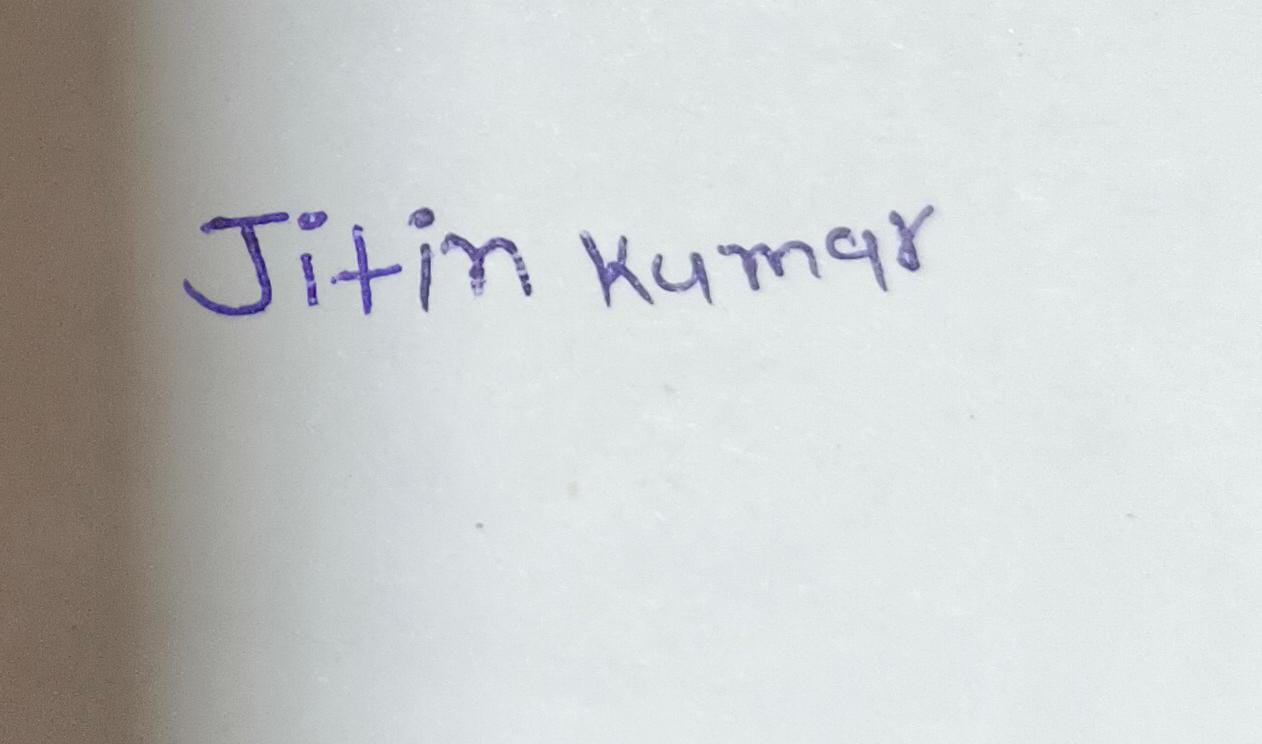 Jitin Kumar